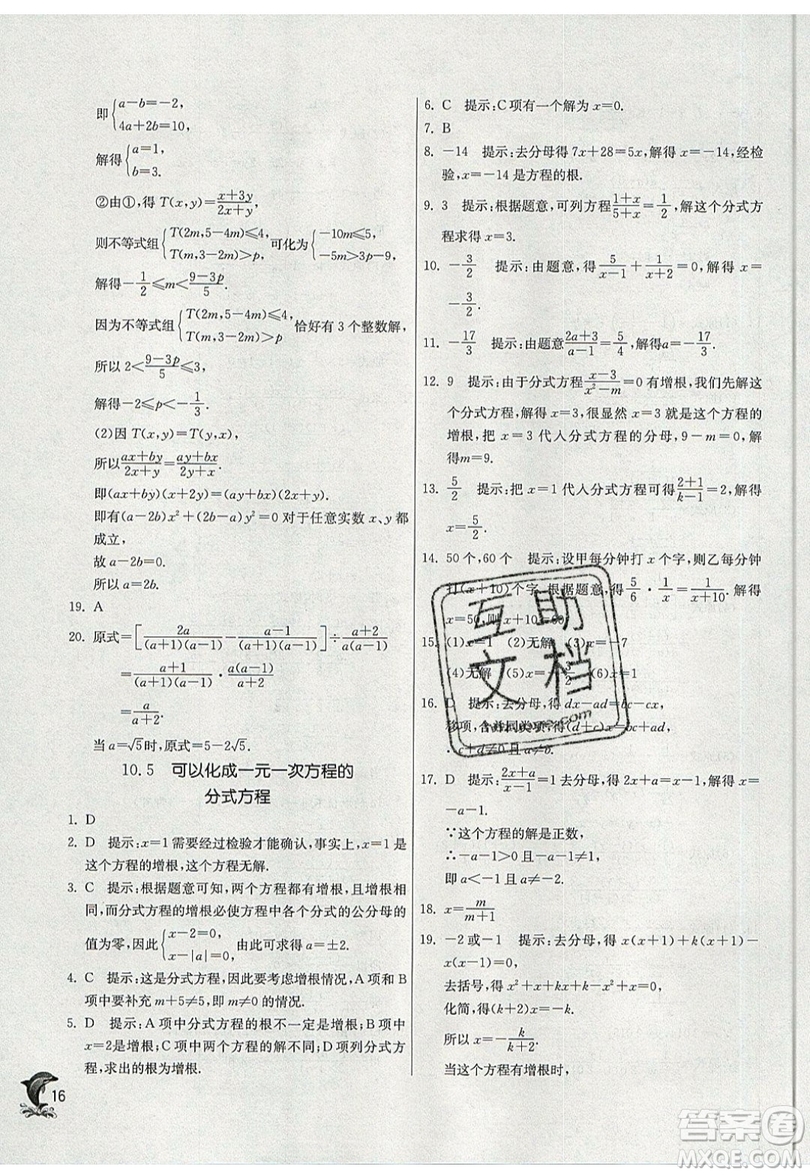 即{a－b＝－2，
4a＋2b＝10，
解得{a＝1，
b＝3.
②由①，得 T(x,y)＝(x＋3y)/(2x＋y)
则不等式组{T(2m,5－4m)≤4， T(m,3－2m)＞p，可化为{－10m≤5， －5m＞3p－9.
解得－1/2≤m＜(9－3p)/5.
因为不等式组{T(2m,5－4m)≤4， T(m,3－2m)＞p 恰好有 3 个整数解，
所以 2＜(9－3p)/5≤3
解得－2≤p＜－1/3.
(2)因 T(x,y)＝T(y,x)，
所以(ax＋by)/(2x＋y)＝(ay＋bx)/(2y＋x)
即(ax＋by)(x＋2y)＝(ay＋bx)(2x＋y)
即有(a－2b)x²＋(2b－a)y²＝0 对于任意实数 x、y 都
成立，
故 a－2b＝0.
所以 a＝2b.
19. A
20. 原式＝[2a/((a＋1)(a－1))－(a－1)/((a＋1)(a－1))]÷(a＋2)/(a－1)
＝(a＋1)/((a＋1)(a－1))·(a－1)/(a＋2)
＝/(a＋2).
当 a＝√5时，原式＝5－2√5.
10.5 可以化成一元一次方程的
分式方程
1. D
2. D 提示：x＝1 需要经过检验才能确认，事实上，x＝1是
这个方程的增根，这个方程无解.
3. C 提示：根据题意可知，两个方程都有增根，且增根相
同，而分式方程的增根必使方程中各个分式的公分母的
值为零，因此{x－2＝0， x－|a|＝0. 由此可求得 a＝±2.
4. C 提示：这是分式方程，这里要考虑增根情况，A 项和 B
项中要补充 m＋5≠5，即 m≠0 的情况.
5. D 提示：A 项中分式方程的根不一定是增根；B 项中
有两个方程；C 项中两个方程的解不同；D 项列分式方
程，求出的根为增根.
16
6. C 提示：C 项有一个解为 x＝0.
7. B
8. －14 提示：去分母得 7x＋28＝5x，解得 x＝－14，经检
验，x＝－14 是方程的根.
9. 3 提示：根据题意，可列方程(1＋x)/(5＋x)＝1/2，解这个分式方
程求得 x＝3.
10. －3/2 提示：由题意，得 5/(x－1)＋1/(x＋2)＝0，解得 x＝
－3/2.
11. －17/3 提示：由题意(2a＋3)/(a－1)＝5/4，解得 a＝－17/3.
12. 9 提示：由于分式方程(x－3)/(x²－m)＝0 有增根，我们先解这
个分式方程，解得 x＝3，很显然 x＝3 就是这个方程的
增根，把 x＝3 代入分式方程的分母，9－m＝0，解
得m＝9.
13. 5/2 提示：把 x＝1 代入分式方程可得(2＋1)/(k－1)＝2/1，解得
x＝5/2.
14. 50 个，60 个 提示：设甲每分钟打 x 个字，则乙每分钟
打(x＋10)个字，根据题意，得 5/6·1/x＝1/(x＋10). 解得
x＝50，x＋10＝60.
15. (1)x＝ (2)无解 (3)x＝－7
(4)无解 (5)x＝
16. C 提示：去分母，得 dx－ad＝bc－cx，
移项，合并同类项，得(d＋c)x＝bc＋ad，
∴c＋d≠0.
17. D 提示：(2x＋a)/(x－1)＝1. 解得 x＝－a－1.
∵这个方程的解是正数，
∴－a－1＞0 且－a－1≠1，
即 a＜－1 且 a≠－2.
18. x＝m/(m＋1)
19. －2 或－1 提示：去分母，得 x(x＋1)＋k(x＋1)－
x(x－1)＝0，
去括号，得 x²＋x＋kx＋k－x²＋x＝0，
化简，得(k＋2)x＝－k.
所以 x＝－k/(k＋2).
当这个方程有增根时，
互助
文档
答案卷
MXQE.COM